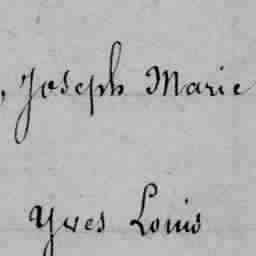 , Joseph Marie
Yves Louis